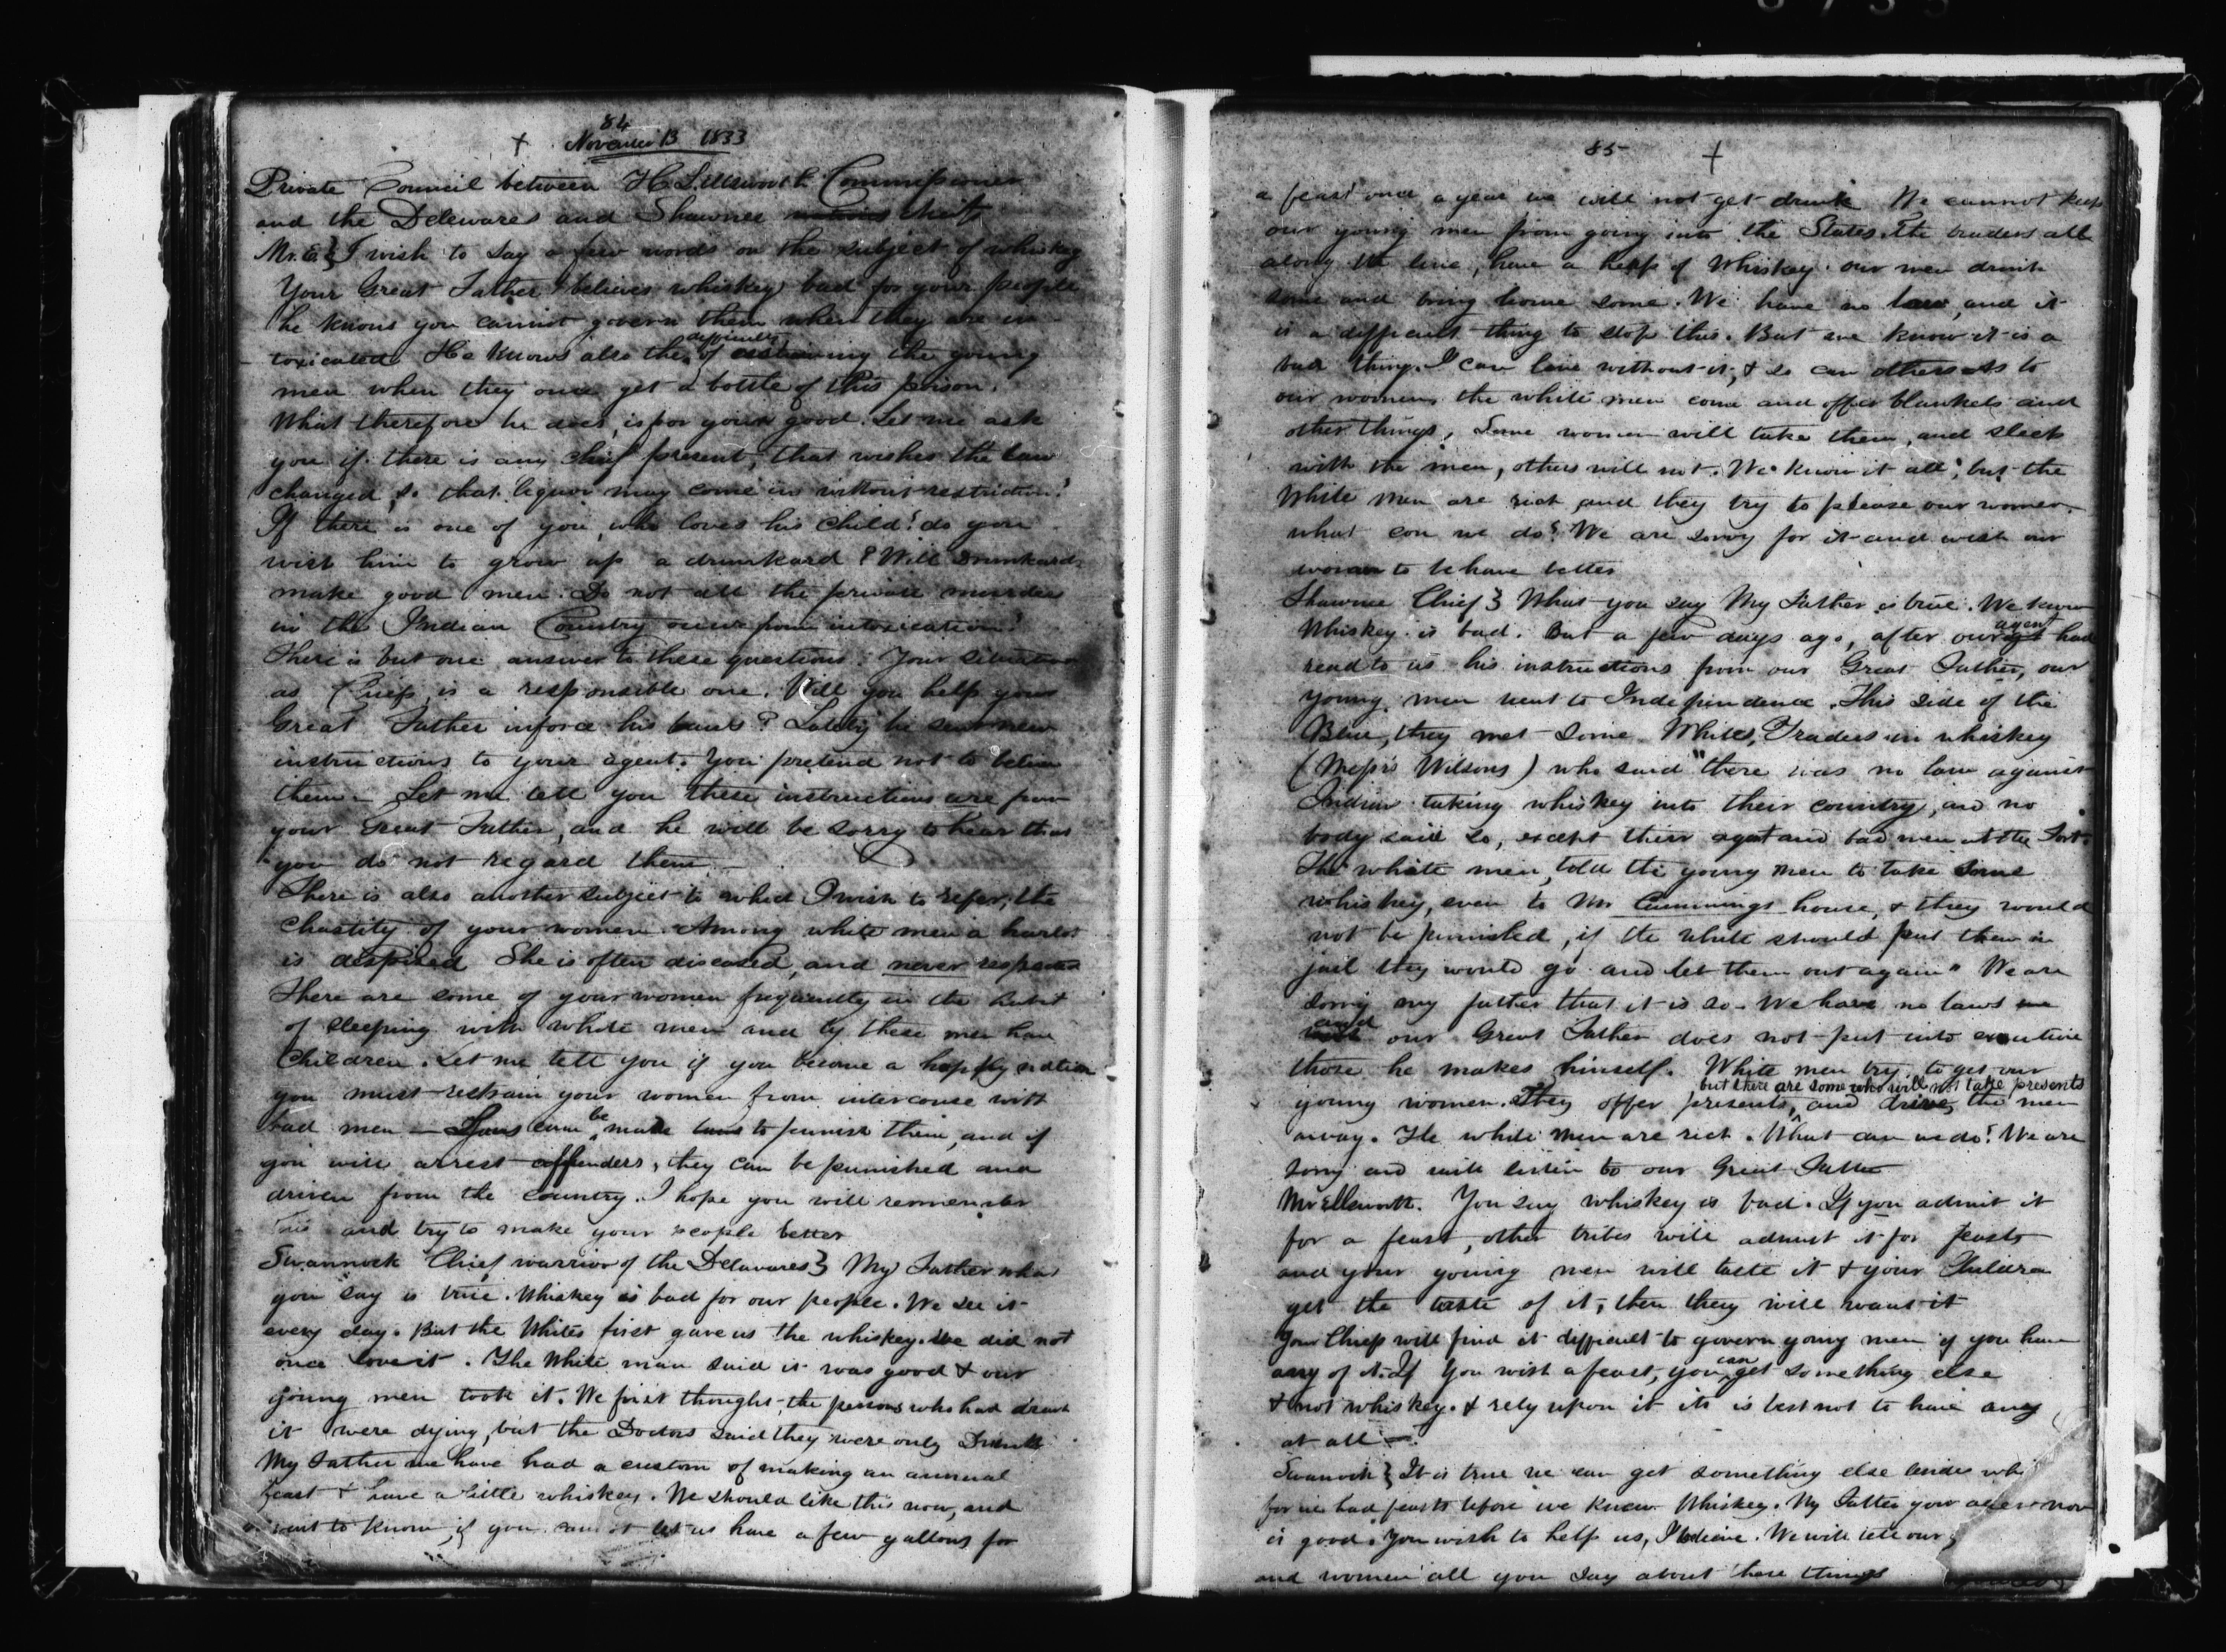 84
November 13 1833
Private Council between H L Ellsworth Commissioner
and the Delewares and Shawnee chiefs
Mr. E.} I wish to say a few words on the subject of whiskey
Your Great Father believes whiskey bad for your people
he knows you cannot govern them when they are in-
toxicated. He knows also the difficulty of restraining the young
men when they once get a bottle of this poison.
What therefore he does, is for your good. Let me ask
you if there is any chief present, that wishes the law
changed, so that liquor may come in without restriction?
If there is one of you, who loves his child? do you
wish him to grow up a drunkard? Will drunkards
make good men. Do not all the private murders
in the Indian Country occur from intoxication?
There is but one answer to these questions. Your situation
as Chiefs is a responsible one. Will you help your
Great Father inforce his laws? Lately he sent new
instructions to your agent. You pretend not to believe
them – Let me tell you these instructions are from
your Great Father, and he will be sorry to hear that
you do not regard them. –
There is also another subject to which I wish to refer, the
Chastity of your women. Among white men a harlot
is despised She is often diseased, and never respected
There are some of your women frequently in the habit
of sleeping with white men and by these men have
Children. Let me tell you if you become a happy nation
you must restrain your women from intercourse with
bad men – Laws can be made to punish them, and if
you will arrest offenders, they can be punished and
driven from the country. I hope you will remember
this and try to make your people better
Swannock Chief warrior of the Delawares} My Father what
you say is true. Whiskey is bad for our people. We see it
every day. But the Whites first gave us the whiskey. We did not
once love it. The White man said it was good & our
young men took it. We first thought, the persons who had drank
it were dying, but the Doctors said they were only Drunk
My Father we have had a custom of making an annual
feast & have a little whiskey. We should like this now, and
want to know, if you cannot let us have a few gallons for
85
a feast once a year we will not get drunk We cannot keep
our young men from going into the States. The traders all
along the line, have a heap of Whiskey. our men drink
some and bring home some. We have no laws, and it
is a difficult thing to stop this. But we know it is a
bad thing. I can live without it, & so can others. As to
our women, the white men come and offer blankets and
other things, Some women will take them, and sleep
with the men, others will not. We know it all; but the
White men are rich and they try to please our women.
what can we do? We are sorry for it and wish our
women to behave better
Shawnee Chief} What you say My Father is true. We know
Whiskey is bad. But a few days ago, after our agent had
read to us his instructions from our Great Father, our
young men went to Independence. This side of the
Blue, they met some Whites, Traders in whiskey
(Messrs Wilsons) who said "there was no law against
Indians taking whiskey into their country, and no
body said so, except their agent and bad men at the Fort.
The white men, told the young men to take some
whiskey, even to Mr Cummings house, & they would
not be punished, if the white should put them in
jail they would go and let them out again" We are
sorry my father that it is so – We have no laws
and our Great Father does not put into execution
those he makes himself. White men try to get our
young women. They offer presents, but there are some who will not take presents and drive, the men
away. The white men are rich. What can we do? We are
sorry and will listen to our Great Father
Mr Ellsworth. You say whiskey is bad. If you admit it
for a feast, other tribes will admit it for feasts
and your young men will taste it & your Children
get the taste of it, then they will want it
Your Chiefs will find it difficult to govern young men if you have
any of it. If you wish a feast, you can get something else
& not whiskey. & rely upon it its is best not to have any
at all –
Swannock} It is true we can get something else besides
for we had feasts before we knew Whiskey. My Father your advice now
is good. You wish to help us, I believe. We will tell our
and women all you say about these things